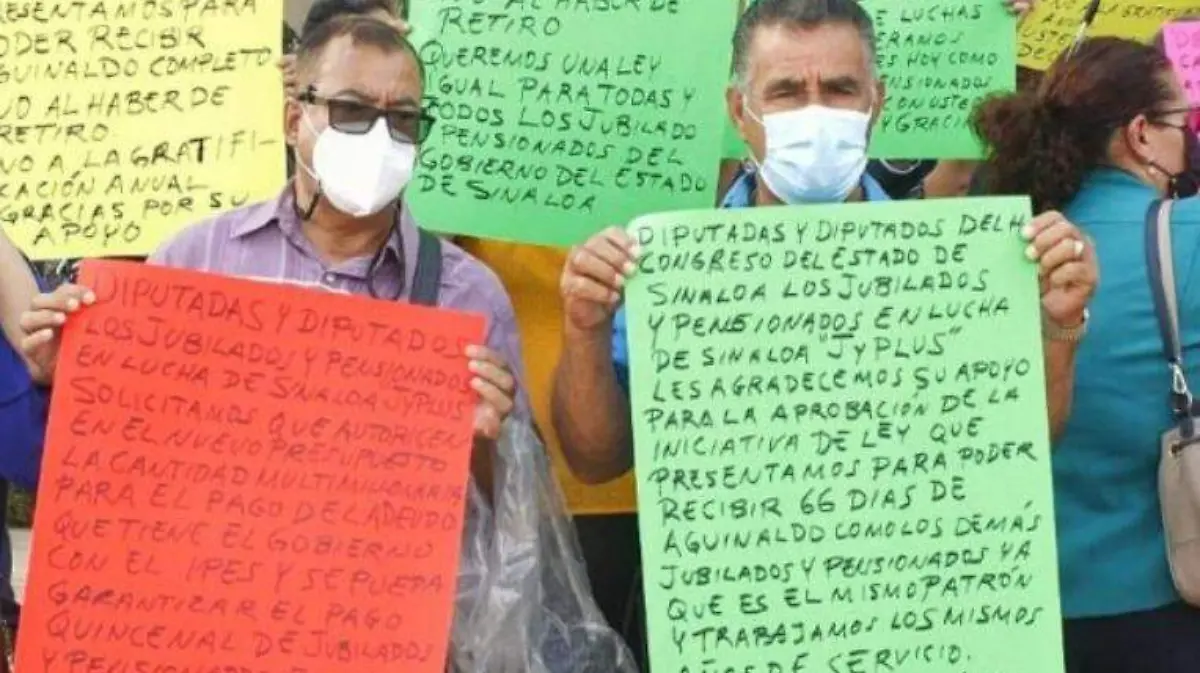 RESENTAMOS PARA
ODER RECIBIR
GUINALDO COMPLETO
NO AL HABER DE
RETIRO
NO A LA GRATIFI-
CACIÓN ANUAL
GRACIAS POR SU
APOYO
NO AL HABER DE
RETIRO
QUEREMOS UNA LEY
IGUAL PARA TODAS Y
TODOS LOS JUBILADO
PENSIONADOS DEL
GOBIERNO DEL ESTADO
DE SINALOA
LUCHAS
ERAMOS
ES HOY COMO
ENSIONADOS
CON USTE
Y GRACI
DIPUTADAS Y DIPUTADOS
LOS JUBILADOS Y PENSIONADOS
EN LUCHA DE SINALOA JYPLUS
SOLICITAMOS QUE AUTORICEN
EN EL NUEVO PRESUPUESTO
LA CANTIDAD MULTIMILLONARIA
PARA EL PAGO DEL ADEUDO
QUE TIENE EL GOBIERNO
CON EL IPES Y SE PUEDA
GARANTIZAR EL PAGO
QUINCENAL DE JUBILADOS
Y PENSIONADOS
DIPUTADAS Y DIPUTADOS DEL H
CONGRESO DEL ESTADO DE
SINALOA LOS JUBILADOS
Y PENSIONADOS EN LUCHA
DE SINALOA "JYPLUS"
LES AGRADECEMOS SU APOYO
PARA LA APROBACIÓN DE LA
INICIATIVA DE LEY QUE
PRESENTAMOS PARA PODER
RECIBIR 66 DIAS DE
AGUINALDO COMO LOS DEMÁS
JUBILADOS Y PENSIONADOS YA
QUE ES EL MISMO PATRÓN
Y TRABAJAMOS LOS MISMOS
AÑOS DE SERVICIO.